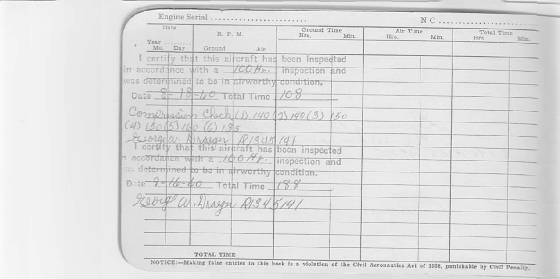 Engine Serial
N C
Date
R. P. M.
Ground Time
Air Time
Total Time
Year
Mo. Day
Ground
Air
Hrs. Min.
Hrs. Min.
Hrs. Min.
I certify that this aircraft has been inspected
in accordance with a 100 Hr. inspection and
was determined to be in airworthy condition.
Date 8-18-60 Total Time 108
Compression Check (1) 140 (2) 140 (3) 150
(4) 150 (5) 160 (6) 135
George W. R1345141
I certify that this aircraft has been inspected
in accordance with a 100 Hr. inspection and
was determined to be in airworthy condition.
Date -16-60 Total Time 188
George W. R1345141
TOTAL TIME
NOTICE:—Making false entries in this book is a violation of the Civil Aeronautics Act of 1938, punishable by Civil Penalty.